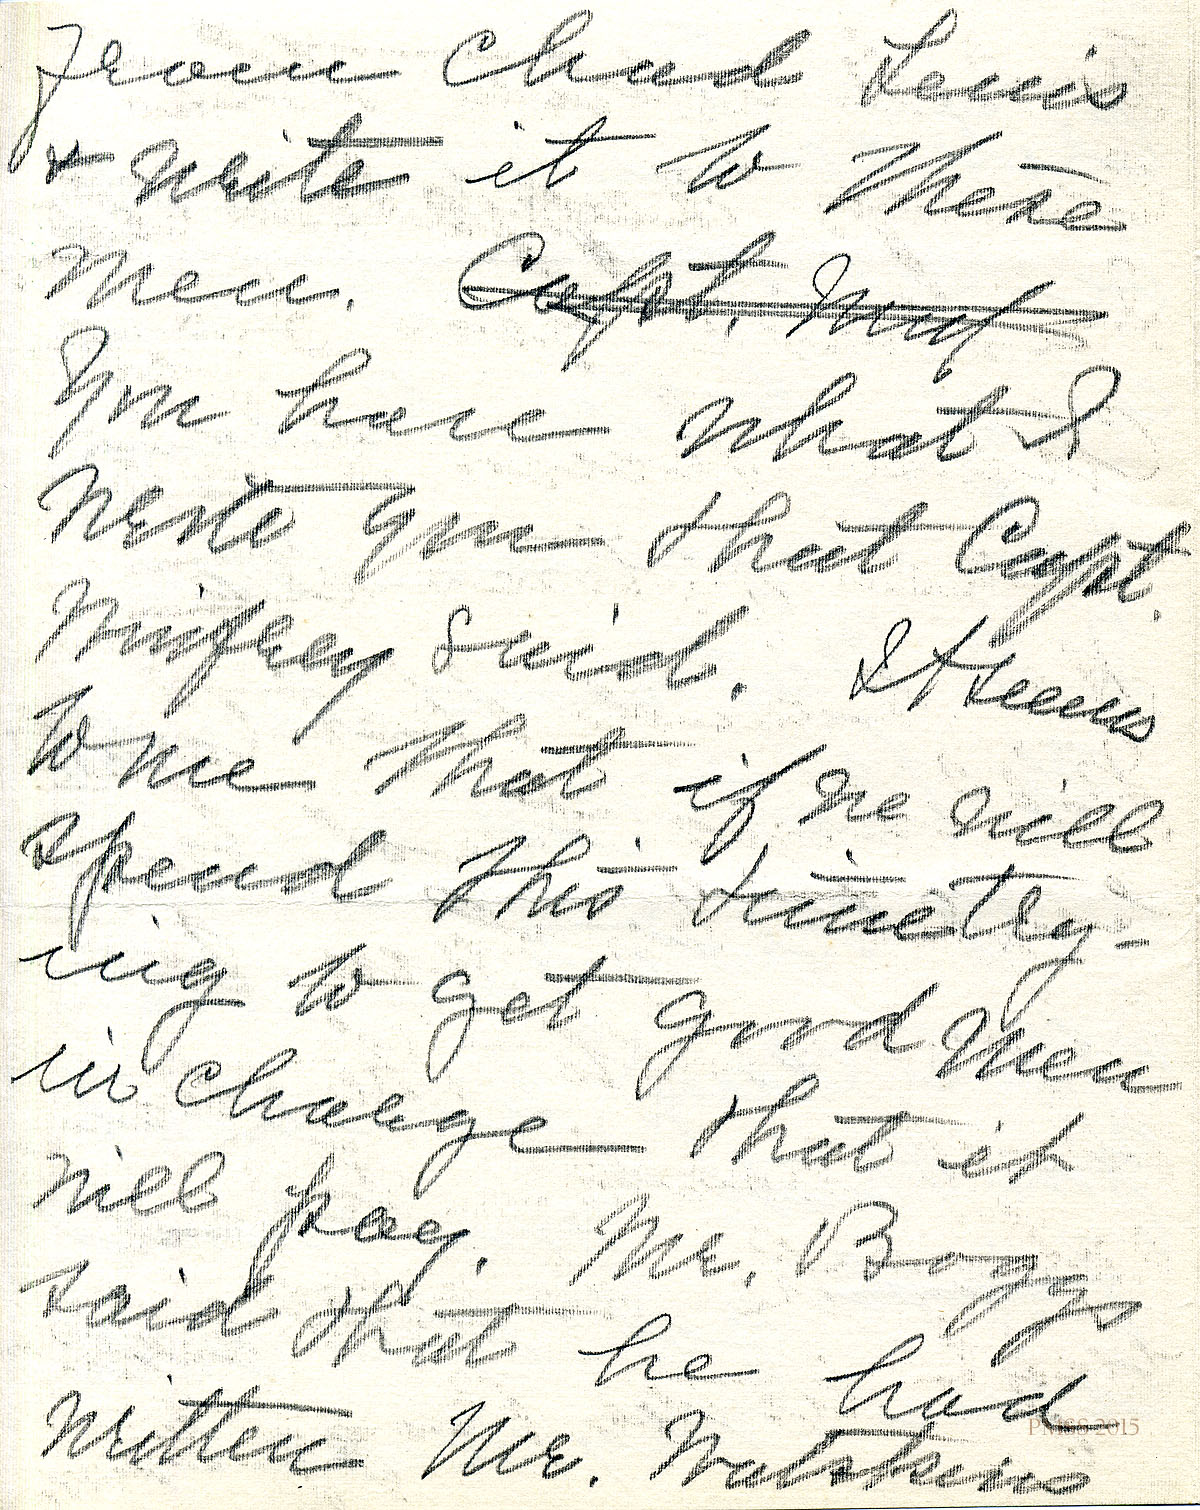 from Chad Lewis
& write it to these
men. Capt. Winf
You have what I
wrote you that Capt.
Winfrey said. It seems
to me that if we will
spend this time try-
ing to get good men
in charge that it
will pay. Mr. Boggs
said that he had
written Mr. Watkins
PMSS 2015